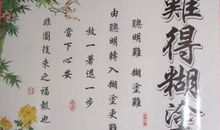 難得糊塗
聰明難 糊塗難
由聰明轉入糊塗更難
放一著退一步
當下心安
非圖後來之福報也